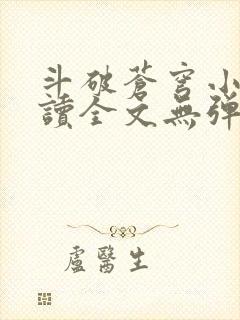 斗破蒼穹小
讀全文無彈
盧醫生